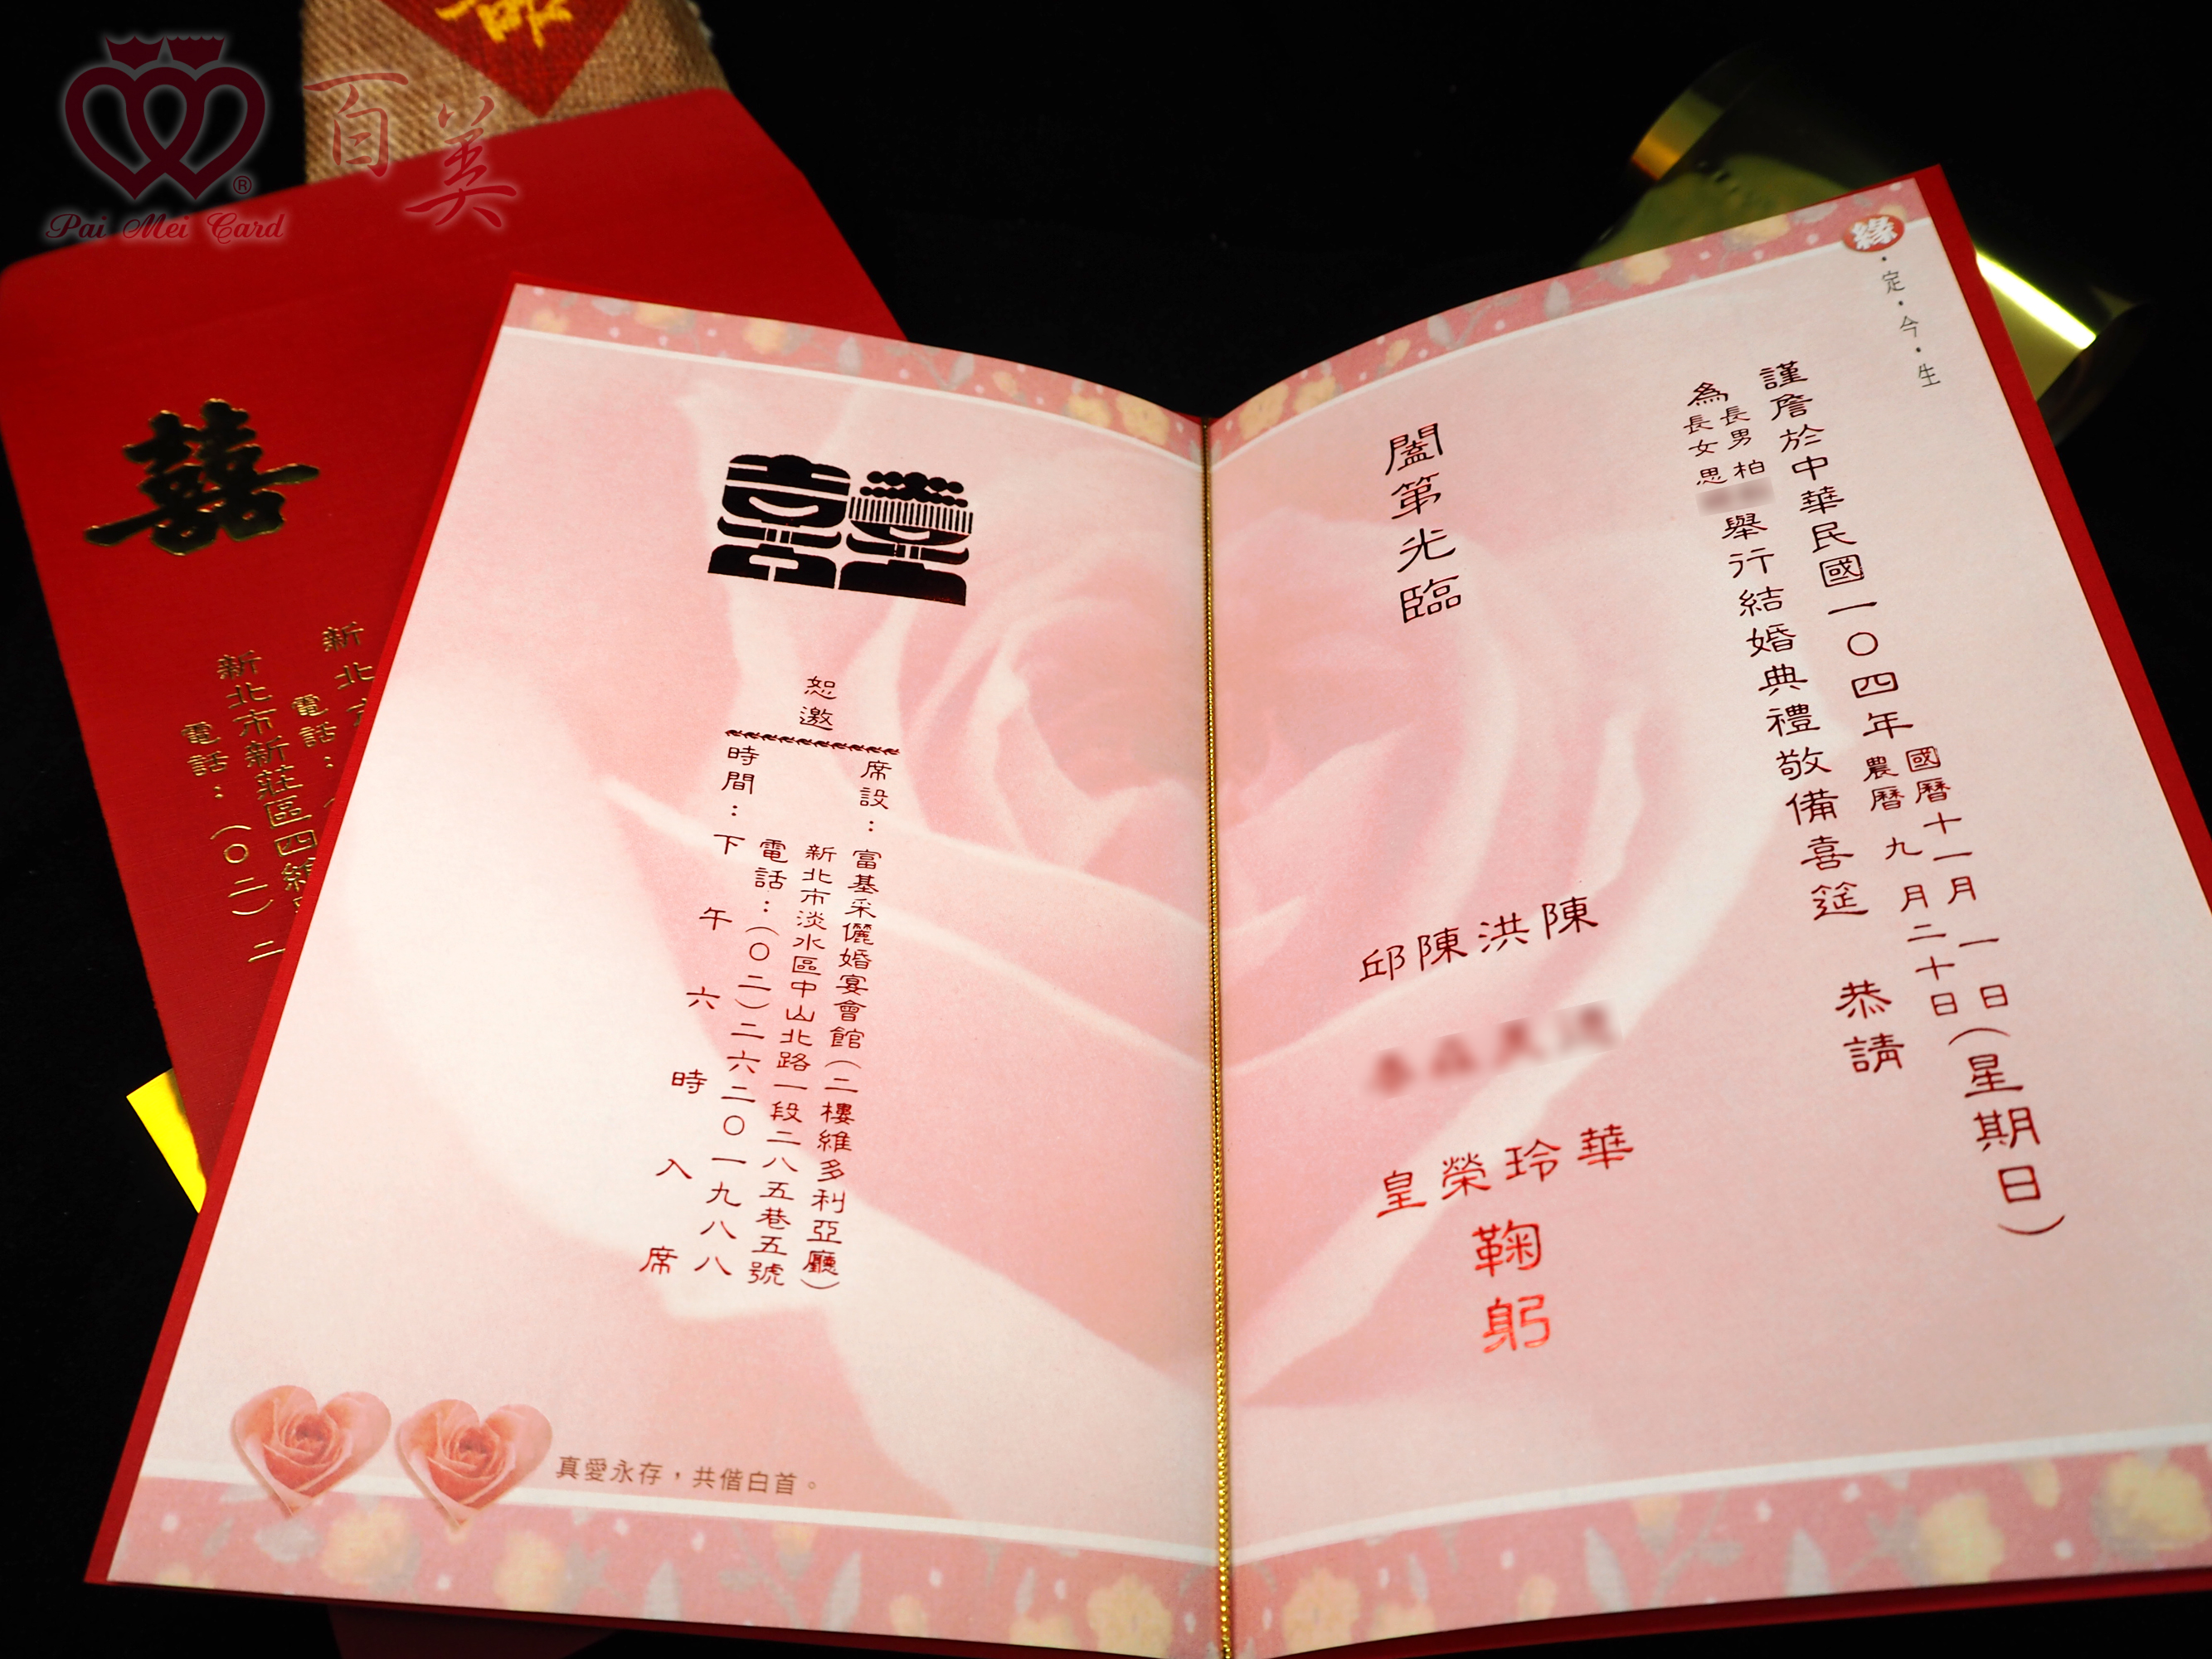 Pai Mei Card
®
百美
囍
新北
電話：
新北市新莊區四維
電話：（○二）二
緣・定・今・生
謹詹於中華民國一○四年
國曆十一月一日
農曆九月二十日
（星期日）
為
長男柏
長女思
舉行結婚典禮敬備喜筵 恭請
闔第光臨
陳 華
洪 玲
陳 榮
邱 皇
鞠躬
囍
恕邀
席設：富基采儷婚宴會館（二樓維多利亞廳）
新北市淡水區中山北路一段二八五巷五號
電話：（○二）二六二○一九八八
時間：下午六時入席
真愛永存，共偕白首。